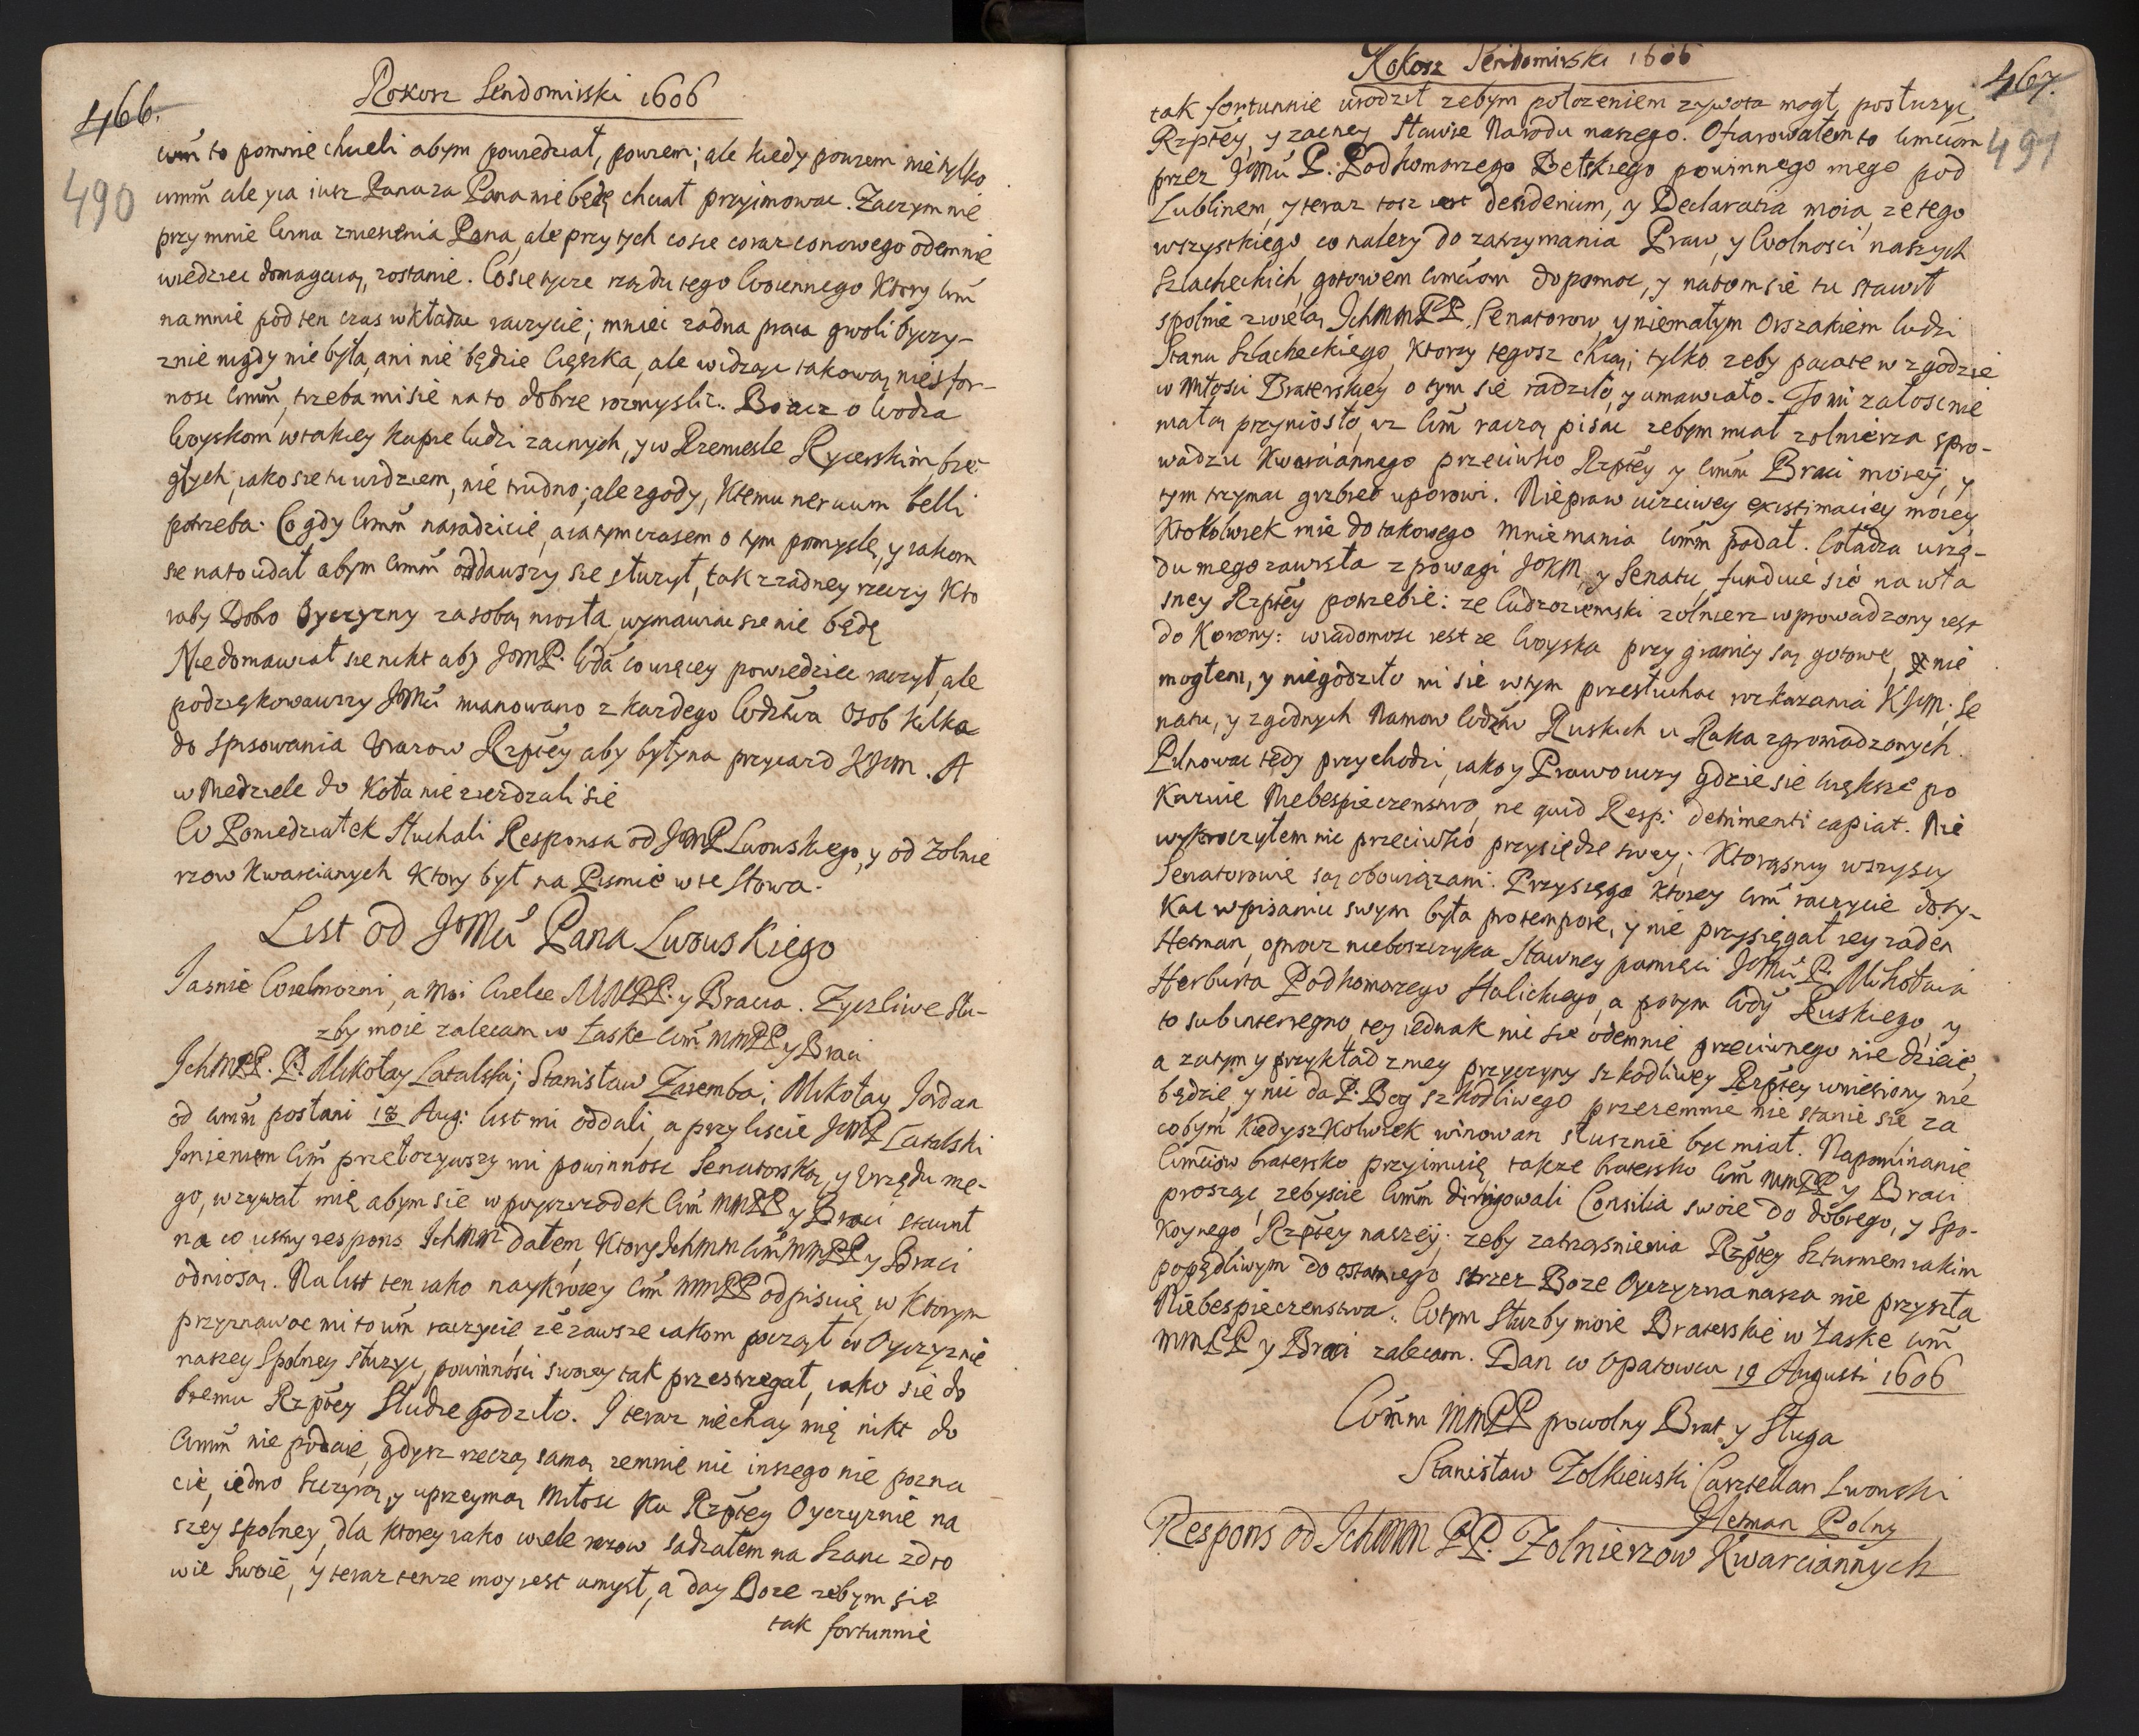 466.
Rokosz Sendomirski 1606
490
to pomnie chcieli abym powiedział, powiem; ale kiedy powiem nie tylko
wmm ale y ia iusz Pana za Pana nie będę chciał przyimowac. Zaczym nie
przy mnie wina zniesienia Pana, ale przy tych co sie coraz co nowego odemnie
wiedziec domagaią, zostanie. Co sie tycze rządu tego Woiennego Ktory wm
na mnie pod ten czas wkładac raczycie; mniei zadna praca gwoli oyczy-
znie nigdy nie była, ani nie będzie cięszka, ale widząc takową niesfor-
nosc wmm, trzeba mi sie na to dobrze rozmyslic. Bo acz o Wodza
Woyskom w takiey kupie ludzi zacnych, y w Rzemiesle Rycerskim bie-
głych, iako sie tu widziem, nie trudno; ale zgody, Ktemu neruum belli
potrzeba. Co gdy wmm naradzicie, a ia tym czasem o tym pomyslę, y iakom
sie na to udał abym wmm oddawszy sie słuzył, tak z zadney rzeczy Kto
raby Dobro Oyczyzny za sobą niosła, wymawiac sie nie będę
Nie domawiał sie nikt aby JomP. Wda co więcey powiedziec raczył, ale
podziękowawszy JoMci mianowano z kazdego Wodztwa Osob kilka
do spisowania Urazow Rzptey aby były na przyiazd KJM. A
w Niedziele do Koła nie ziezdzali się
W Poniedziałek słuchali Responsa od JomP Lwowskiego, y od Zolnie
rzow Kwarcianych Ktory był na Pismie w te słowa.
List od JoMci Pana Lwowskiego
Jasnie Wielmozni, a Moi Wielce MMPP. y Bracia. Zyczliwe słu-
zby moie zalecam w łaske wm MMPP y Braci
IchMPP. P. Mikołay Latalski; Stanisław Zaremba; Mikołay Jordan
od wmm posłani 18 Aug: list mi oddali, a przy liscie JomP Latalski
Imieniem wm przełozywszy mi powinnosc Senatorską, y Urzędu me-
go, wzywał mię abym sie w posrzodek wm MMPP y Braci stawił
na co ustny respons Ichmm dałem, Ktory Ichmm wm MMPP y Braci
odniosą. Na list ten iako naykrocey wm MMPP odpisuię, w Ktorym
przyznawac mi to wm raczycie, ze zawsze iakom począł w Oyczyznie
naszey spolney słuzyc, powinnosci swoiey tak przestrzegał, iako się do
bremu Rzptey słudze godziło. I teraz niechay mię nikt do
wmm nie podaie, gdysz rzeczą samą zemnie nic inszego nie pozna
cie, iedno szczyrą, y uprzeymą Miłosc ku Rzptey Oyczyznie na
szey spolney, dla ktorey iako wiele razow sadzałem na szanc zdro
wie swoie, y teraz tenze moy iest umysł, a day Boze zebym się
tak fortunnie
Rokosz Sendomirski 1606
467.
491
tak fortunnie urodził zebym połozeniem zywota mogł posłuzyc
Rzptey, y zacney sławie Narodu naszego. Ofiarowałem to wmciom
przez JoMci P. Podkomorzego Bełskiego powinnego mego pod
Lublinem, y teraz tosz iest desiderium, y Declaratia moia, ze tego
wszystkiego co nalezy do zatrzymania Praw, y Wolnosci naszych
szlacheckich, gotowem wmciom dopomoc, y na tom sie tu stawił
spolnie z wielą IchmmPP. Senatorow, y niemałym Orszakiem ludzi
Stanu szlacheckiego, Ktorzy tegosz chcą; tylko zeby pacate w zgodzie
w Miłosci Braterskiey o tym sie radziło, y umawiało. To mi załosc nie
małą przyniosło, iz wm raczą pisac zebym miał zolnierza spro-
wadzic Kwarciannego przeciwko Rzptey y wmm Braci moiey, y
tym trzymac grzbiet uporowi. Nie praw uczciwey existimaciey moiey
Ktokolwiek mie do takowego mniemania wmm podał. Władza urzę-
du mego zawisła z powagi JoKM, y Senatu, funduie się na wła
sney Rzptey potrzebie: ze Cudzoziemski zołnierz wprowadzony iest
do Korony: wiadomosc iest ze Woyska przy granicy są gotowe, nie
mogłem, y niegodziło mi się w tym przesłuchac rozkazania KJM. Se
natu, y zgodnych Namow Wodztw Ruskich u Raka zgromadzonych.
Pilnowac tedy przychodzi, iako y Prawo uczy gdzie się większe po
Kazuie Niebespieczenstwo, ne quid Resp: detrimenti capiat. Nie
wykroczyłem nic przeciwko przysiędze swey; Ktorąsmy wszyscy
Senatorowie są obowiązani. Przysięga Ktorey wm raczycie doty-
Kac w pisaniu swym była pro tempore, y nie przysięgał iey zaden
Hetman, oprocz nieboszczyka sławney pamięci JoMci P. Mikołaia
Herburta Podkomorzego Halickiego, a potym Wdy Ruskiego, y
to sub interregno, tey iednak nic sie odemnie przeciwnego nie dzieie,
a zatym y przykład z mey przyczyny szkodliwey Rzptey wniesiony nie
będzie, y nic da P. Bog szkodliwego przezemnie nie stanie się za
cobym Kiedysz Kolwiek winowan słusznie byc miał. Napominanie
wmciow bratersko przyimuię, takze bratersko wm MMPP y Braci
proszę, zebyscie wmm dirigowali Consilia swoie do dobrego, y spo-
koynego Rzptey naszey; zeby zatrząśnienia Rzptey szturmem iakim
popędliwym do ostatniego strzez Boze Oyczyzna nasza nie przyszła
Niebespieczenstwa. Wtym słuzby moie Braterskie w łaske wm
MMPP y Braci zalecam. Dan w Opatowcu 19 Augusti 1606
Wmm MMPP powolny Brat y Sługa
Stanisław Zołkiewski Casztellan Lwowski
Hetman Polny
Respons od Ichmm PP. Zolnierzow Kwarciannych